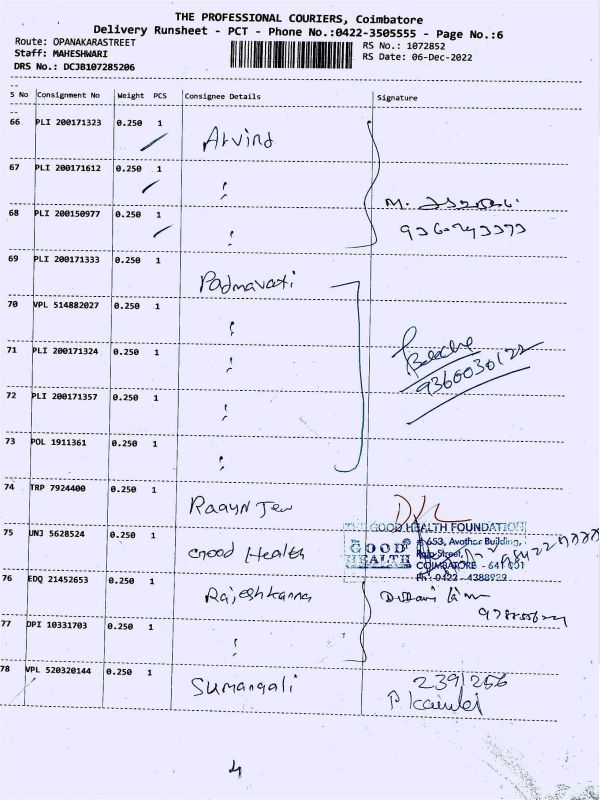 THE PROFESSIONAL COURIERS, Coimbatore
Delivery Runsheet - PCT - Phone No.:0422-3505555 - Page No.:6
Route: OPANAKARASTREET
Staff: MAHESHWARI
DRS No.: DCJB107285206
RS No.: 1072852
RS Date: 06-Dec-2022
S No Consignment No Weight PCS Consignee Details Signature
66 PLI 200171323 0.250 1 Arvind
67 PLI 200171612 0.250 1 ;
68 PLI 200150977 0.250 1 ;
69 PLI 200171333 0.250 1 Padmavati
70 VPL 514882027 0.250 1 ;
71 PLI 200171324 0.250 1 ;
72 PLI 200171357 0.250 1 ;
73 POL 1911361 0.250 1 ;
9360030122
74 TRP 7924400 0.250 1
THE GOOD HEALTH FOUNDATION
75 UNJ 5628524 0.250 1 Good Health
GOOD HEALTH
# 653, Avothar Building,
Street,
COIMBATORE - 641 001
Ph : 0422 - 4388929
76 EDQ 21452653 0.250 1 Rajeshkanna
77 DPI 10331703 0.250 1 ;
78 VPL 520320144 0.250 1 Sumangali
2391256
4